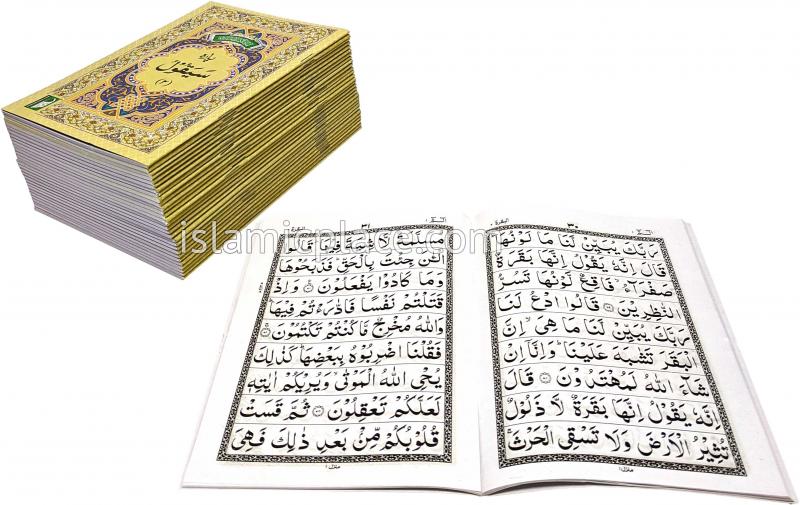 پارہ
سيقول
(۲)
islamicplace.com
البقرة ٢
٣٠
الٓـمّٓ ١
رَبَّكَ يُبَيِّنْ لَّنَا مَا لَوْنُهَا
قَالَ اِنَّهٗ يَقُوْلُ اِنَّهَا بَقَرَةٌ
صَفْرَآءُ فَاقِعٌ لَّوْنُهَا تَسُرُّ
النّٰظِرِيْنَ ۝ قَالُوا ادْعُ لَنَا
رَبَّكَ يُبَيِّنْ لَّنَا مَا هِيَ ۙ اِنَّ
الْبَقَرَ تَشٰبَهَ عَلَيْنَا ؕ وَاِنَّآ اِنْ
شَآءَ اللّٰهُ لَمُهْتَدُوْنَ ۝ قَالَ
اِنَّهٗ يَقُوْلُ اِنَّهَا بَقَرَةٌ لَّا ذَلُوْلٌ
تُثِيْرُ الْاَرْضَ وَلَا تَسْقِى الْحَرْثَ ۚ
منزل ١
البقرة ٢
٣١
الٓـمّٓ ١
مُسَلَّمَةٌ لَّا شِيَةَ فِيْهَا ؕ قَالُوا
الْـٰٔنَ جِئْتَ بِالْحَقِّ ؕ فَذَبَحُوْهَا
وَمَا كَادُوْا يَفْعَلُوْنَ ۝ وَاِذْ
قَتَلْتُمْ نَفْسًا فَادّٰرَءْتُمْ فِيْهَا ؕ
وَاللّٰهُ مُخْرِجٌ مَّا كُنْتُمْ تَكْتُمُوْنَ ۝
فَقُلْنَا اضْرِبُوْهُ بِبَعْضِهَا ؕ كَذٰلِكَ
يُحْيِ اللّٰهُ الْمَوْتٰى ۙ وَيُرِيْكُمْ اٰيٰتِهٖ
لَعَلَّكُمْ تَعْقِلُوْنَ ۝ ثُمَّ قَسَتْ
قُلُوْبُكُمْ مِّنْۢ بَعْدِ ذٰلِكَ فَهِىَ
منزل ١